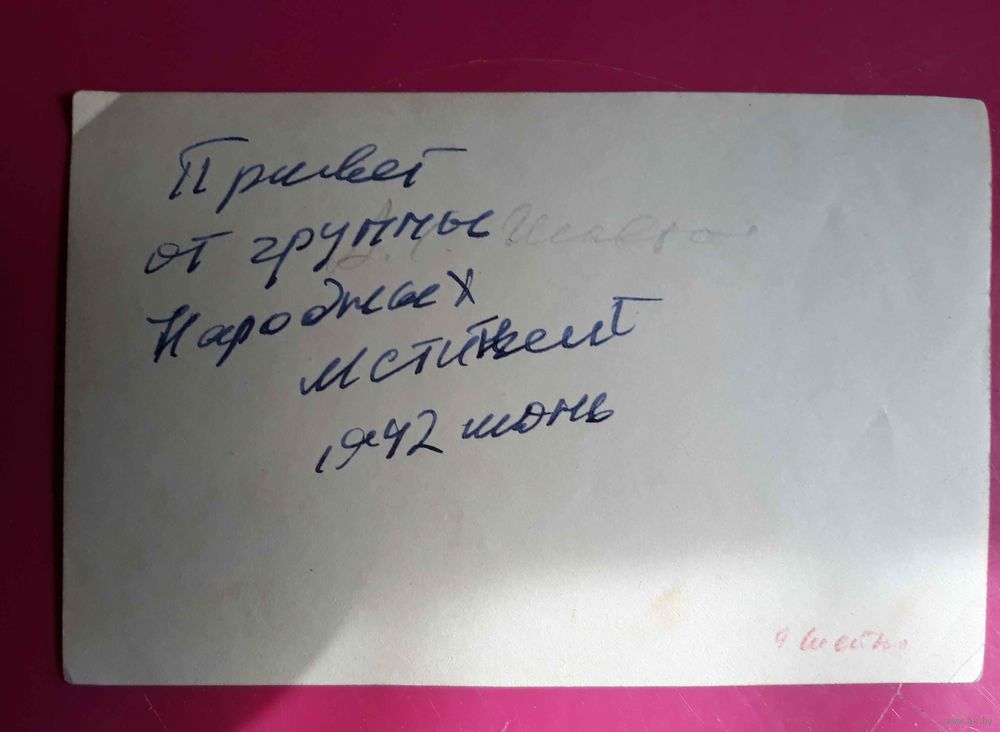 Привет
от группы
Народных
мстителей
1942 июнь